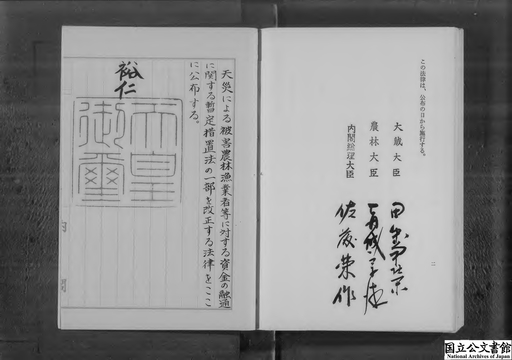 この法律は、公布の日から施行する。
大蔵大臣 田中角榮
農林大臣 赤城宗徳
内閣総理大臣 佐藤榮作
二
天災による被害農林漁業者等に対する資金の融通
に関する暫定措置法の一部を改正する法律をここ
に公布する。
裕仁
天皇
御璽
内閣
国立公文書館
National Archives of Japan